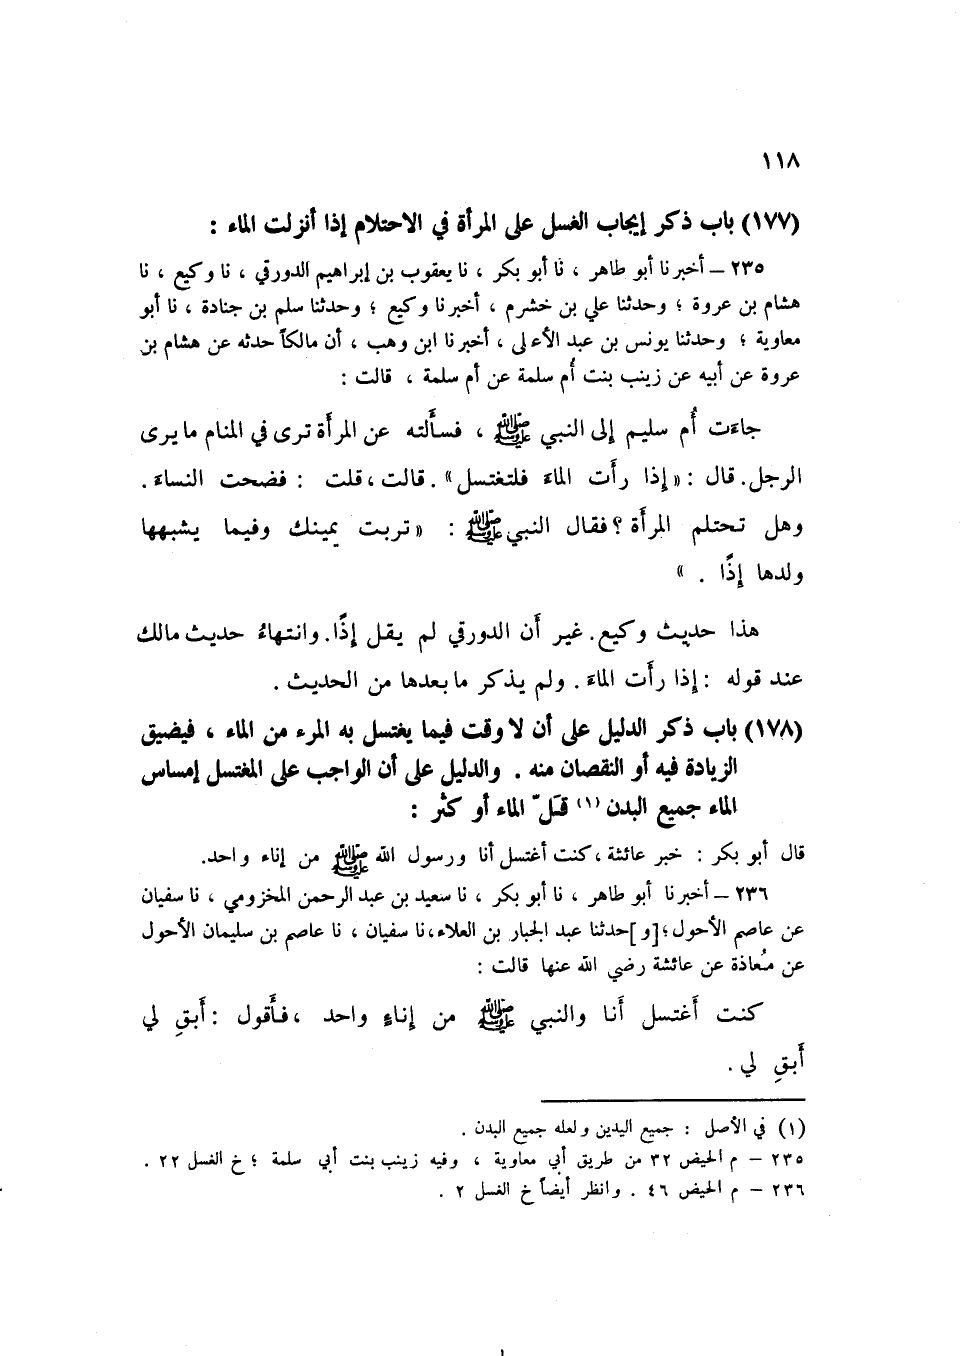 ١١٨
(١٧٧) باب ذكر إيجاب الغسل على المرأة في الاحتلام إذا أنزلت الماء :
٢٣٥ – أخبرنا أبو طاهر ، نا أبو بكر ، نا يعقوب بن إبراهيم الدورقي ، نا وكيع ، نا
هشام بن عروة ؛ وحدثنا علي بن خشرم ، أخبرنا وكيع ؛ وحدثنا سلم بن جنادة ، نا أبو
معاوية ؛ وحدثنا يونس بن عبد الأعلى ، أخبرنا ابن وهب ، أن مالكاً حدثه عن هشام بن
عروة عن أبيه عن زينب بنت أُم سلمة عن أم سلمة ، قالت :
جاءَت أُم سليم إلى النبي ﷺ ، فسأَلته عن المرأَة ترى في المنام ما يرى
الرجل. قال : «إذا رأَت الماءَ فلتغتسل» . قالت ، قلت : فضحت النساءَ .
وهل تحتلم المرأَة ؟ فقال النبي ﷺ : «تربت يمينك وفيما يشبهها
ولدها إذًا . »
هذا حديث وكيع. غير أَن الدورقي لم يقل إذًا. وانتهاءُ حديث مالك
عند قوله : إذا رأَت الماءَ . ولم يذكر ما بعدها من الحديث .
(١٧٨) باب ذكر الدليل على أن لا وقت فيما يغتسل به المرء من الماء ، فيضيق
الزيادة فيه أو النقصان منه . والدليل على أن الواجب على المغتسل إمساس
الماء جميع البدن (١) قَلّ الماء أو كثر :
قال أبو بكر : خبر عائشة ، كنت أغتسل أنا ورسول الله ﷺ من إناء واحد.
٢٣٦ – أخبرنا أبو طاهر ، نا أبو بكر ، نا سعيد بن عبد الرحمن المخزومي ، نا سفيان
عن عاصم الأحول؛ [و] حدثنا عبد الجبار بن العلاء، نا سفيان ، نا عاصم بن سليمان الأحول
عن مُعاذة عن عائشة رضي الله عنها قالت :
كنت أَغتسل أَنا والنبي ﷺ من إناءٍ واحد ، فأَقول : أَبقِ لي
أَبقِ لي .
(١) في الأصل : جميع اليدين ولعله جميع البدن .
٢٣٥ – م الحيض ٣٢ من طريق أبي معاوية ، وفيه زينب بنت أبي سلمة ؛ خ الغسل ٢٢ .
٢٣٦ – م الحيض ٤٦ . وانظر أيضاً خ الغسل ٢ .